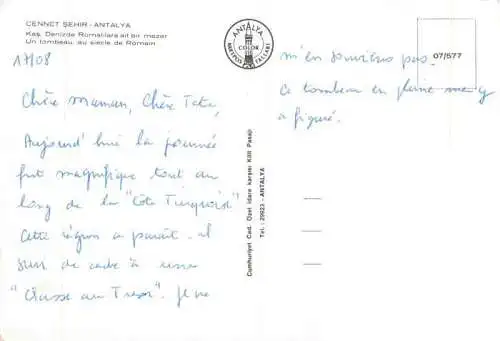 CENNET ŞEHIR - ANTALYA
Kaş. Denizde Romalılara ait bir mezar
Un tombeau, au siècle de Romain
17/08
Chère Maman, Chère Tata,
Aujourd'hui la journée
fut magnifique tout au
long de la "Côte Turquoise"
Cette région a paraît-il
servi de cadre à une
"Chasse au Trésor". Je ne
ANTALYA
COLOR
KARTPOSTALLARI
Cumhuriyet Cad. Özel İdare karşısı Kilit Pasajı
Tel.: 29923 - ANTALYA
07/577
m'en souviens pas.
Ce tombeau en pleine mer y
a figuré.